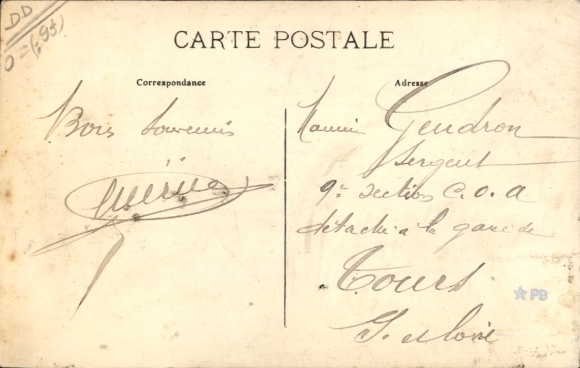 DD
CARTE POSTALE
Correspondance
Bons Souvenirs
Adresse
Gendron
Sergent
9e section C.O.A
détaché à la gare de
Tours
I. et Loire
PB